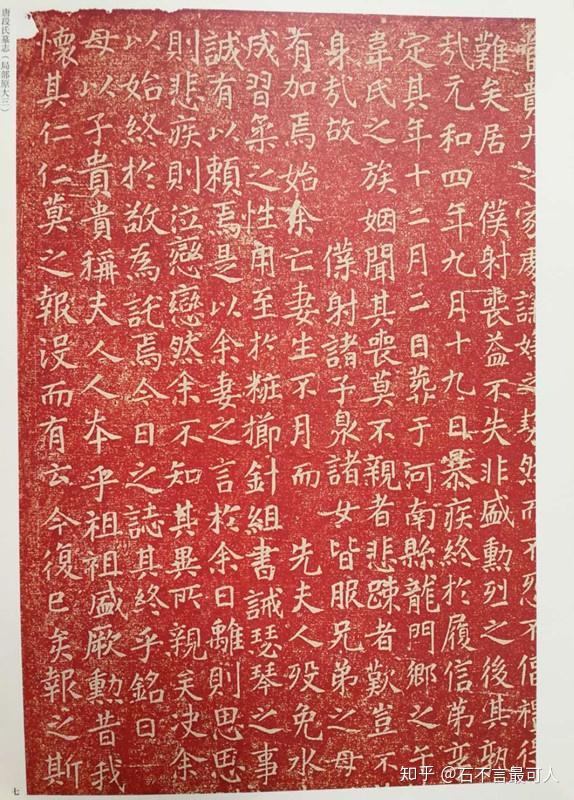 之家處謙
然而不忍不
難矣居 僕射喪益不失非盛勳烈之後其孰
㢤元和四年九月十九日暴疾終於履信第
定其年十二月二日葬于河南縣龍門鄉之午
韋氏之族姻聞其喪莫不親者悲疎者歎豈不
身㢤故 僕射諸子泉諸女皆服兄弟之母
有加焉始余亡妻生不月而 先夫人歿免水
成習柔之性用至於粧擳針組書誡瑟琴之事
誠有以賴焉是以余妻之言於余曰離則思思
則悲疾則泣戀戀然余不知其異所親矣决余
以始終於敬為託焉今日之誌其終乎銘曰
母以子貴貴稱夫人人夲乎祖祖盛厥勳昔我
懷其仁仁莫之報没而有云今復已矣報之斯
唐段氏墓志（局部原大三）
七
知乎 @石不言最可人